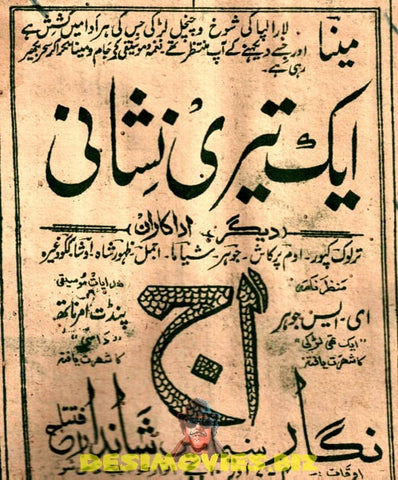 مینا
لارا لپا کی شوخ و چنچل لڑکی جس کی ہر ادا میں کشش ہے
اور جسے دیکھنے کے آپ منتظر تھے۔ نغمہ و موسیقی کی جام و مینا ٹکرا کر سحر بکھیر
رہی ہے۔
ایک تیری نشانی
دیگر اداکاران
ترلوک کپور۔ اوم پرکاش۔ جوہر۔ شیاما۔ اجمل۔ ظہور شاہ۔ اوشا۔ کلو وغیرہ
ای۔ ایس جوہر
"ایک تھی لڑکی"
کا شہرت یافتہ
پنڈت امرناتھ
"داسی"
کا شہرت یافتہ
آج
نگار
سنیما
شاندار
افتتاح
اوقات
DESIMOVIES.BIZ